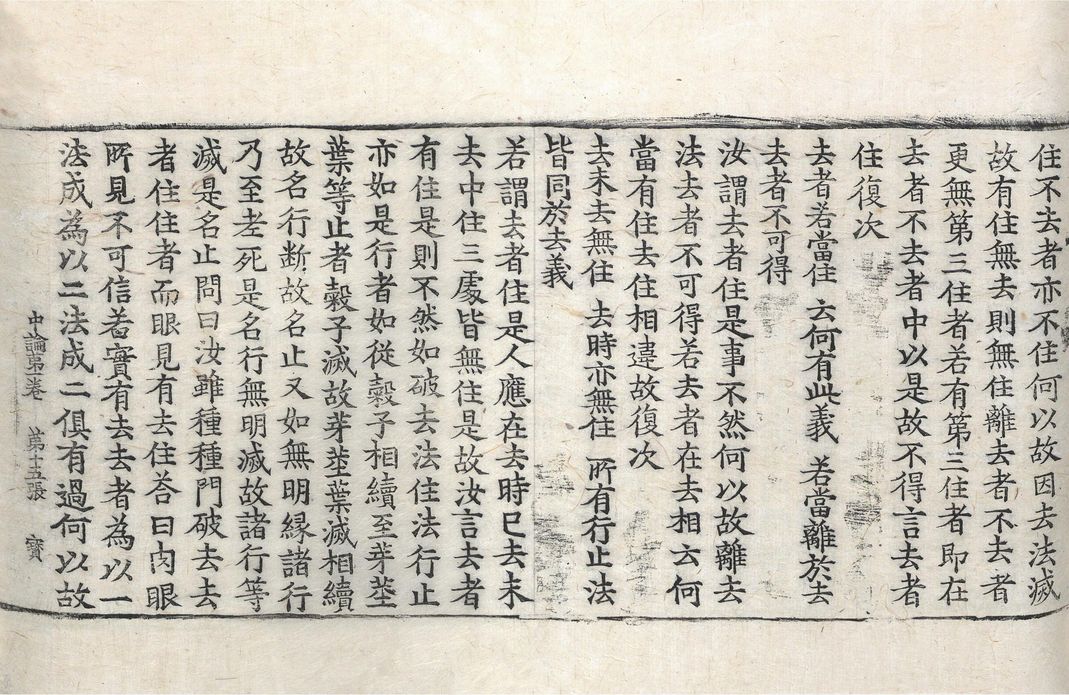 住不去者亦不住何以故因去法滅
故有住無去則無住離去者不去者
更無第三住者若有第三住者即在
去者不去者中以是故不得言去者
住復次
去者若當住 云何有此義 若當離於去
去者不可得
汝謂去者住是事不然何以故離去
法去者不可得若去者在去相云何
當有住去住相違故復次
去未去無住 去時亦無住 所有行止法
皆同於去義
若謂去者住是人應在去時已去未
去中住三處皆無住是故汝言去者
有住是則不然如破去法住法行止
亦如是行者如從穀子相續至芽莖
葉等止者穀子滅故芽莖葉滅相續
故名行断故名止又如無明緣諸行
乃至老死是名行無明滅故諸行等
滅是名止問曰汝雖種種門破去去
者住住者而眼見有去住答曰肉眼
所見不可信若實有去去者為以一
法成為以二法成二俱有過何以故
中論第卷 第十五張 寳